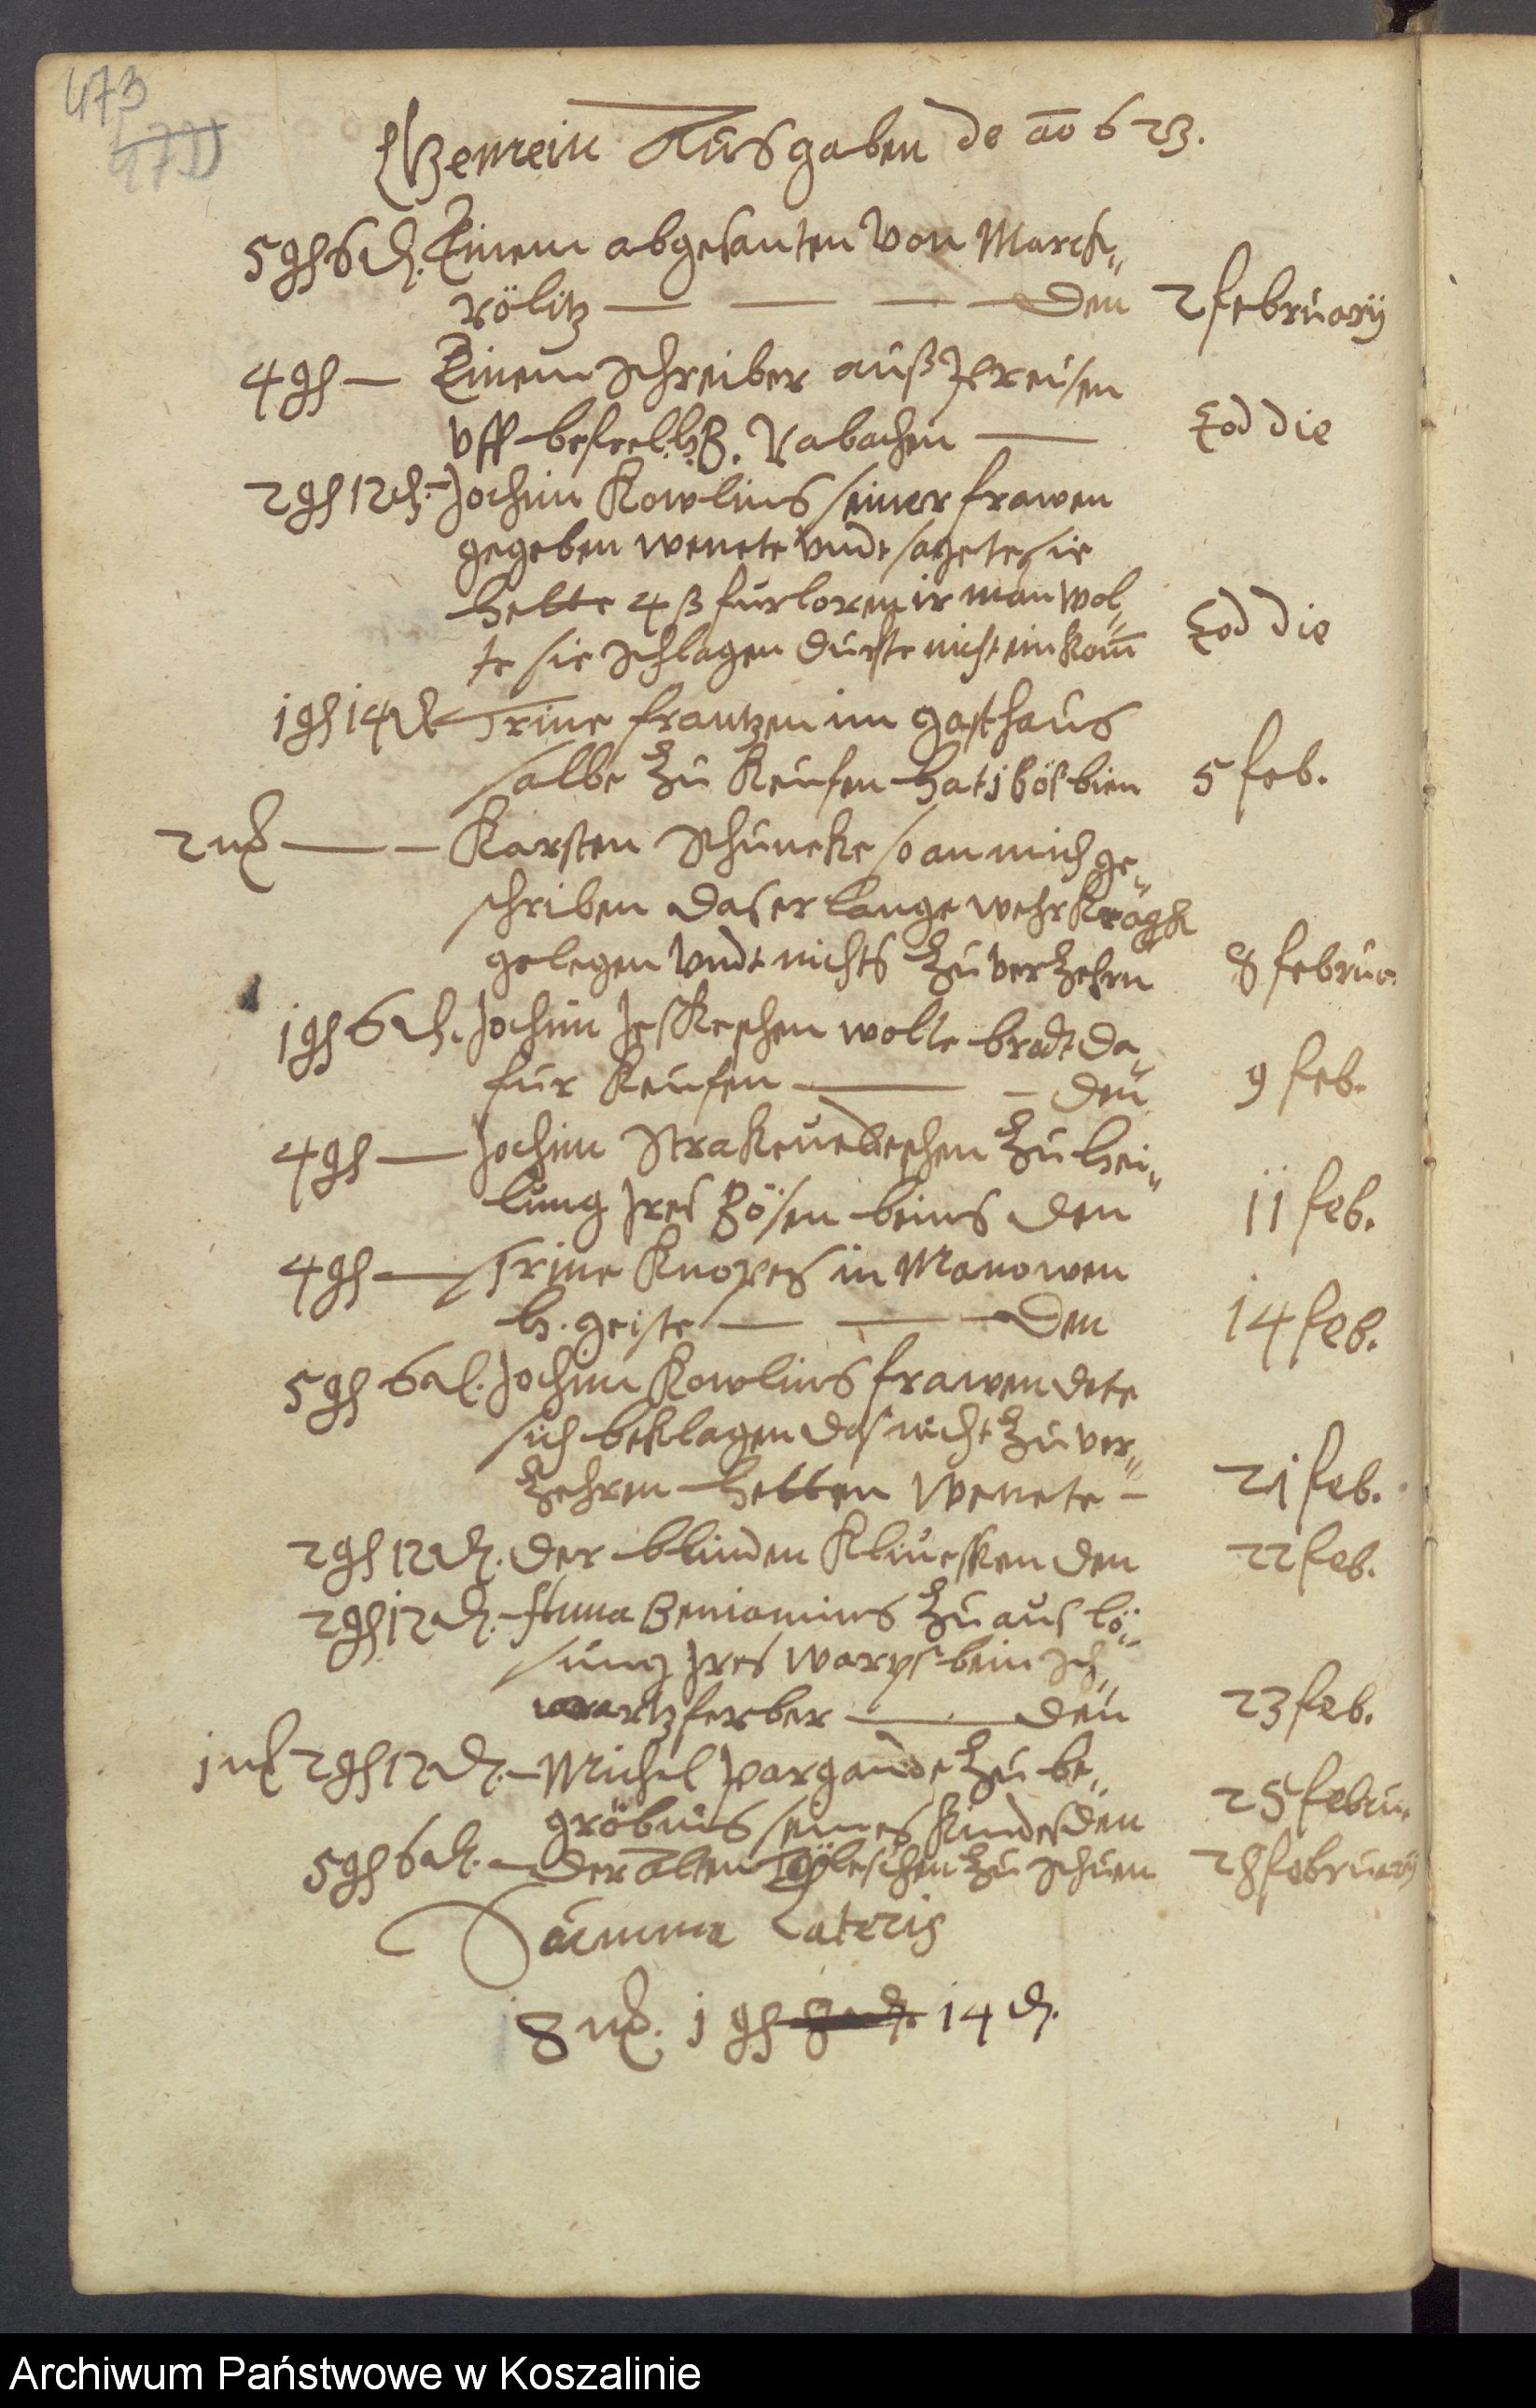 473
Gemein Ausgaben de ao 623.
5 gß 6 d. Einem abgesanten von Marck-
rölitz — — — den 2 february
4 gß — Einem schreiber auß Preusen
uff befeel h. B. Rabachen — Eod die
2 gß 12 d. Jochim Kowlins seiner frawen
gegeben wenete undt sagete sie
hette 4 ß furloren ir man wol-
te sie schlagen durfte nicht ein kom̄ Eod die
1 gß 14 d Trine frantzen im gasthaus
salbe zu keufen hat j böß bien 5 feb.
2 mk — Karsten Schuneke so an mich ge-
schriben das er lange wehr
gelegen undt nichts zu verzehrn 8 februa.
1 gß 6 d. Jochim Jeskeschen wolte brodt da-
fur keufen — den 9 feb.
4 gß — Jochim zu hei-
lung Ires Bösen beins den 11 feb.
4 gß — Trine Knopes in Manowen
h. geiste — — den 14 feb.
5 gß 6 d. Jochim Kowlins frawen dete
sich beklagen das nicht zu ver-
zehren hetten wenete — 21 feb.
2 gß 12 d. der blinden den 22 feb.
2 gß 12 d. Anna Beniamins zu auslö-
sung Ires warps bein sch-
wartzferber — den 23 feb.
1 mk 2 gß 12 d. Michel Pargande zu be-
gröbnis seines kindes den 25 febru.
5 gß 6 d. — der alten zu schuen 28 february
Summa Lateris
8 mk. 1 gß 14 d.
Archiwum Państwowe w Koszalinie